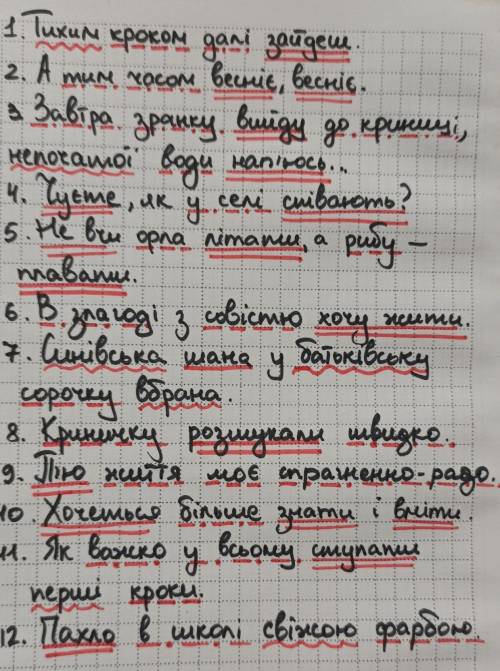 1. Тихим кроком далі зайдеш.
2. А тим часом весніє, весніє.
3. Завтра зранку вийду до криниці,
непочатої води нап'юсь...
4. Чуєте, як у селі співають?
5. Не вчи орла літати, а рибу –
плавати.
6. В злагоді з совістю хочу жити.
7. Синівська шана у батьківську
сорочку вбрана.
8. Криничку розшукали швидко.
9. П'ю життя моє спраженко-радо.
10. Хочеться більше знати і вміти.
11. Як важко у всьому ступати
перші кроки.
12. Пахло в школі свіжою фарбою.